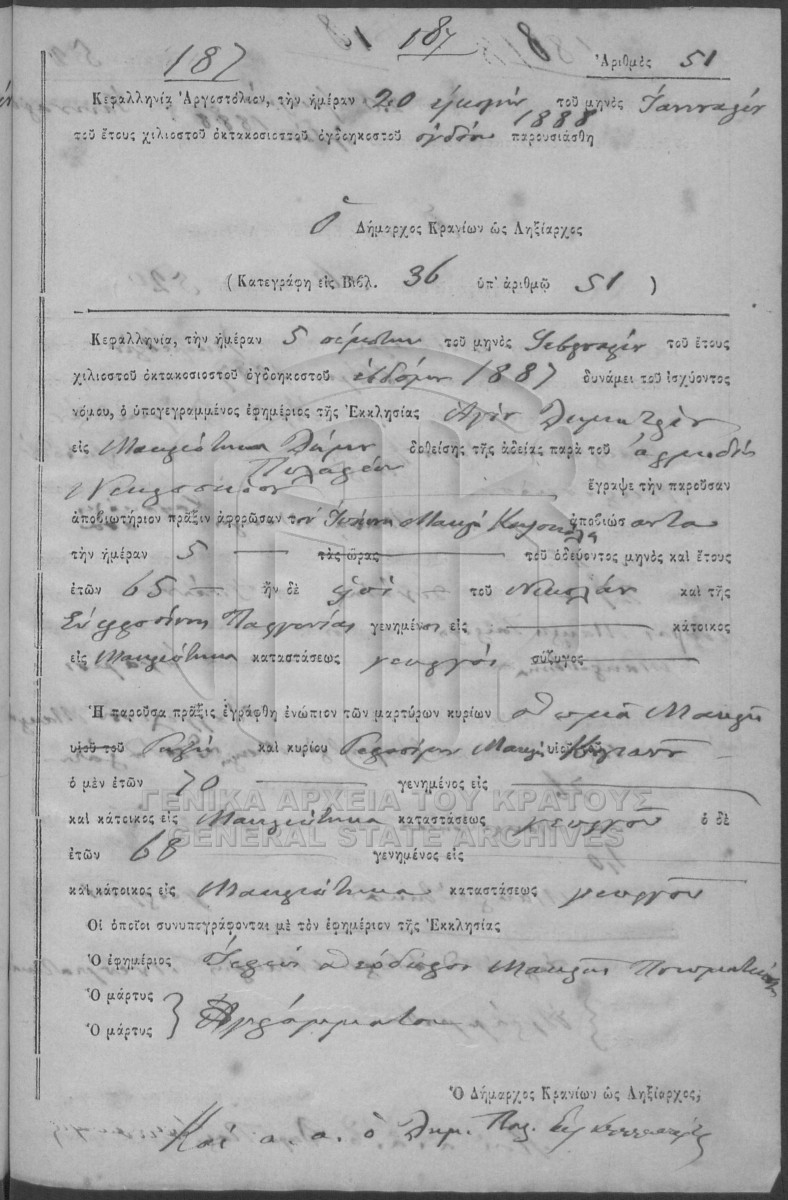 187
187
Ἀριθμὸς 51
Κεφαλληνία Ἀργοστόλιον, τὴν ἡμέραν 20 εἰκοστὴν τοῦ μηνὸς Ἰανουαρίου
τοῦ ἔτους χιλιοστοῦ ὀκτακοσιοστοῦ ὀγδοηκοστοῦ ὀγδόου 1888 παρουσιάσθη
Ὁ Δήμαρχος Κρανίων ὡς Ληξίαρχος
(Κατεγράφη εἰς Βιβλ. 36 ὑπ' ἀριθμῷ 51)
Κεφαλληνία, τὴν ἡμέραν 5 πέμπτην τοῦ μηνὸς τοῦ ἔτους
χιλιοστοῦ ὀκτακοσιοστοῦ ὀγδοηκοστοῦ ἑβδόμου 1887 δυνάμει τοῦ ἰσχύοντος
νόμου, ὁ ὑπογεγραμμένος ἐφημέριος τῆς Ἐκκλησίας Ἁγίου Δημητρίου
εἰς Μακρυώτικα Δήμου δοθείσης τῆς ἀδείας παρὰ τοῦ ἁρμοδίου
Πυλαρέων
ἔγραψε τὴν παροῦσαν
ἀποβιωτήριον πρᾶξιν ἀφορῶσαν τὸν Ἰωάννην Μακρῆ ἀποβιώσαντα
τὴν ἡμέραν 5 τὰς ὥρας τοῦ ὁδεύοντος μηνὸς καὶ ἔτους
ἐτῶν 65 ἦν δὲ υἱὸς τοῦ Νικολάου καὶ τῆς
Εὐφροσύνης γενημένος εἰς κάτοικος
εἰς Μακρυώτικα καταστάσεως γεωργὸς σύζυγος
Ἡ παροῦσα πρᾶξις ἐγράφθη ἐνώπιον τῶν μαρτύρων κυρίων Θωμᾶ Μακρῆ
υἱοῦ τοῦ καὶ κυρίου Γερασίμου Μακρῆ υἱοῦ
ὁ μὲν ἐτῶν 70 γενημένος εἰς
καὶ κάτοικος εἰς Μακρυώτικα καταστάσεως γεωργοῦ ὁ δὲ
ἐτῶν 68 γενημένος εἰς
καὶ κάτοικος εἰς Μακρυώτικα καταστάσεως γεωργοῦ
Οἱ ὁποῖοι συνυπεγράφονται μὲ τὸν ἐφημέριον τῆς Ἐκκλησίας
Ὁ ἐφημέριος Ἱερεὺς Θεόδωρος Μακρῆς
Ὁ μάρτυς
Ὁ μάρτυς } Ἀγράμματοι
Ὁ Δήμαρχος Κρανίων ὡς Ληξίαρχος,
Καὶ α. α. ὁ Δημ. Παρ.
ΓΕΝΙΚΑ ΑΡΧΕΙΑ ΤΟΥ ΚΡΑΤΟΥΣ
GENERAL STATE ARCHIVES